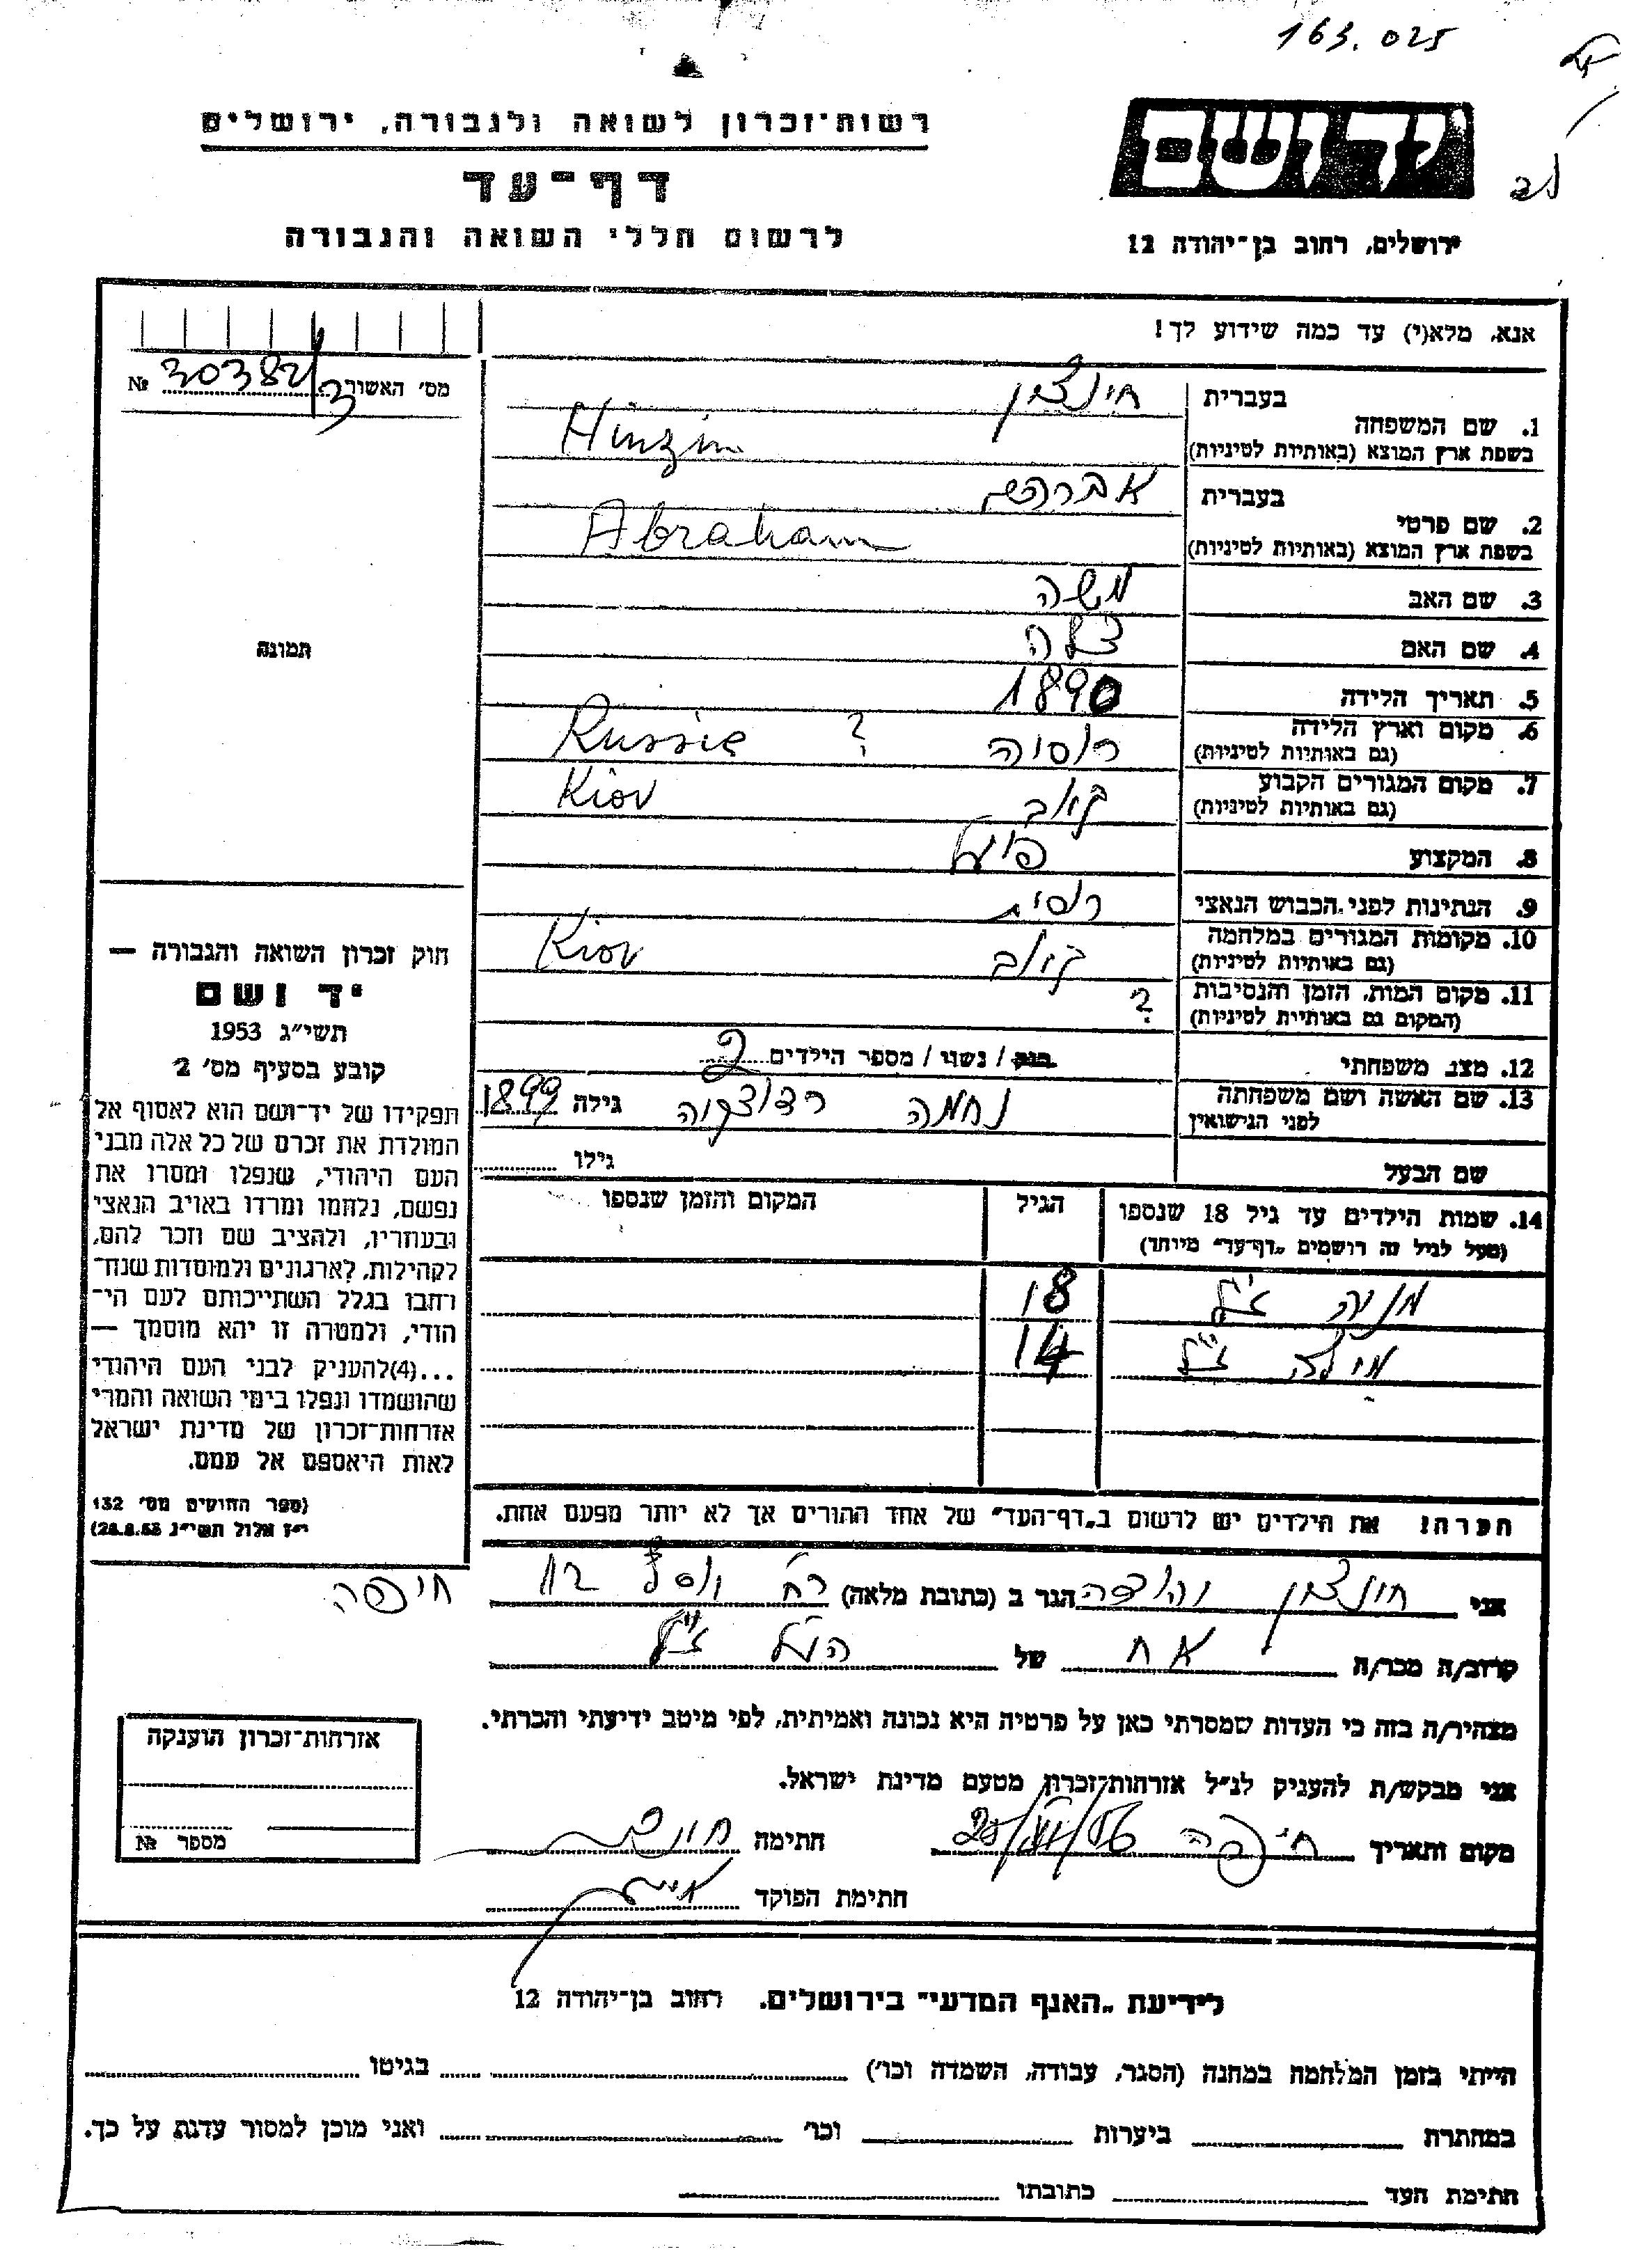 163.025
יד ושם
ירושלים, רחוב בן־יהודה 12
רשות־זכרון לשואה ולגבורה, ירושלים
דף־עד
לרשום חללי השואה והגבורה
אנא, מלא(י) עד כמה שידוע לך!
מס׳ האשור 30382/3 №
1. שם המשפחה
בעברית חינצין
בשפת ארץ המוצא (באותיות לטיניות) Hinzin
2. שם פרטי
בעברית אברהם
בשפת ארץ המוצא (באותיות לטיניות) Abraham
3. שם האב משה
4. שם האם
5. תאריך הלידה 1890
6. מקום וארץ הלידה רוסיה ? Russie
(גם באותיות לטיניות)
7. מקום המגורים הקבוע קיוב Kiov
(גם באותיות לטיניות)
8. המקצוע פועל
9. הנתינות לפני הכבוש הנאצי רוסית
10. מקומות המגורים במלחמה קיוב Kiov
(גם באותיות לטיניות)
11. מקום המות, הזמן והנסיבות ?
(המקום גם באותיות לטיניות)
12. מצב משפחתי רווק / נשוי / מספר הילדים 2
13. שם האשה ושם משפחתה נחמה גילה 1899
לפני הנישואין
שם הבעל גילו
14. שמות הילדים עד גיל 18 שנספו הגיל המקום והזמן שנספו
(מעל לגיל זה רושמים „דף־עד״ מיוחד)
מניה ז״ל 18
ז״ל 14
תמונה
חוק זכרון השואה והגבורה —
יד ושם
תשי״ג 1953
קובע בסעיף מס׳ 2
תפקידו של יד־ושם הוא לאסוף אל
המולדת את זכרם של כל אלה מבני
העם היהודי, שנפלו ומסרו את
נפשם, נלחמו ומרדו באויב הנאצי
ובעוזריו, ולהציב שם וזכר להם,
לקהילות, לארגונים ולמוסדות שנח־
רחבו בגלל השתייכותם לעם הי־
הודי, ולמטרה זו יהא מוסמך —
...(4)להעניק לבני העם היהודי
שהושמדו ונפלו בימי השואה והמרי
אזרחות־זכרון של מדינת ישראל
לאות היאספם אל עמם.
(ספר החוקים מס׳ 132
י״ז אלול תשי״ג 28.8.53)
הערה! את הילדים יש לרשום ב„דף־העד״ של אחד ההורים אך לא יותר מפעם אחת.
אני חינצין יהודה הגר ב (כתובת מלאה) רח׳ חיפה
קרוב/ה מכר/ה אח של הנ״ל ז״ל
מצהיר/ה בזה כי העדות שמסרתי כאן על פרטיה היא נכונה ואמיתית, לפי מיטב ידיעתי והכרתי.
אני מבקש/ת להעניק לנ״ל אזרחות־זכרון מטעם מדינת ישראל.
מקום ותאריך חיפה חתימה
חתימת הפוקד
אזרחות־זכרון הוענקה
מספר №
לידיעת „האגף המדעי״ בירושלים. רחוב בן־יהודה 12
הייתי בזמן המלחמה במחנה (הסגר, עבודה, השמדה וכו׳) בגיטו
במחתרת ביערות וכו׳ ואני מוכן למסור עדות על כך.
חתימת העד כתובתו